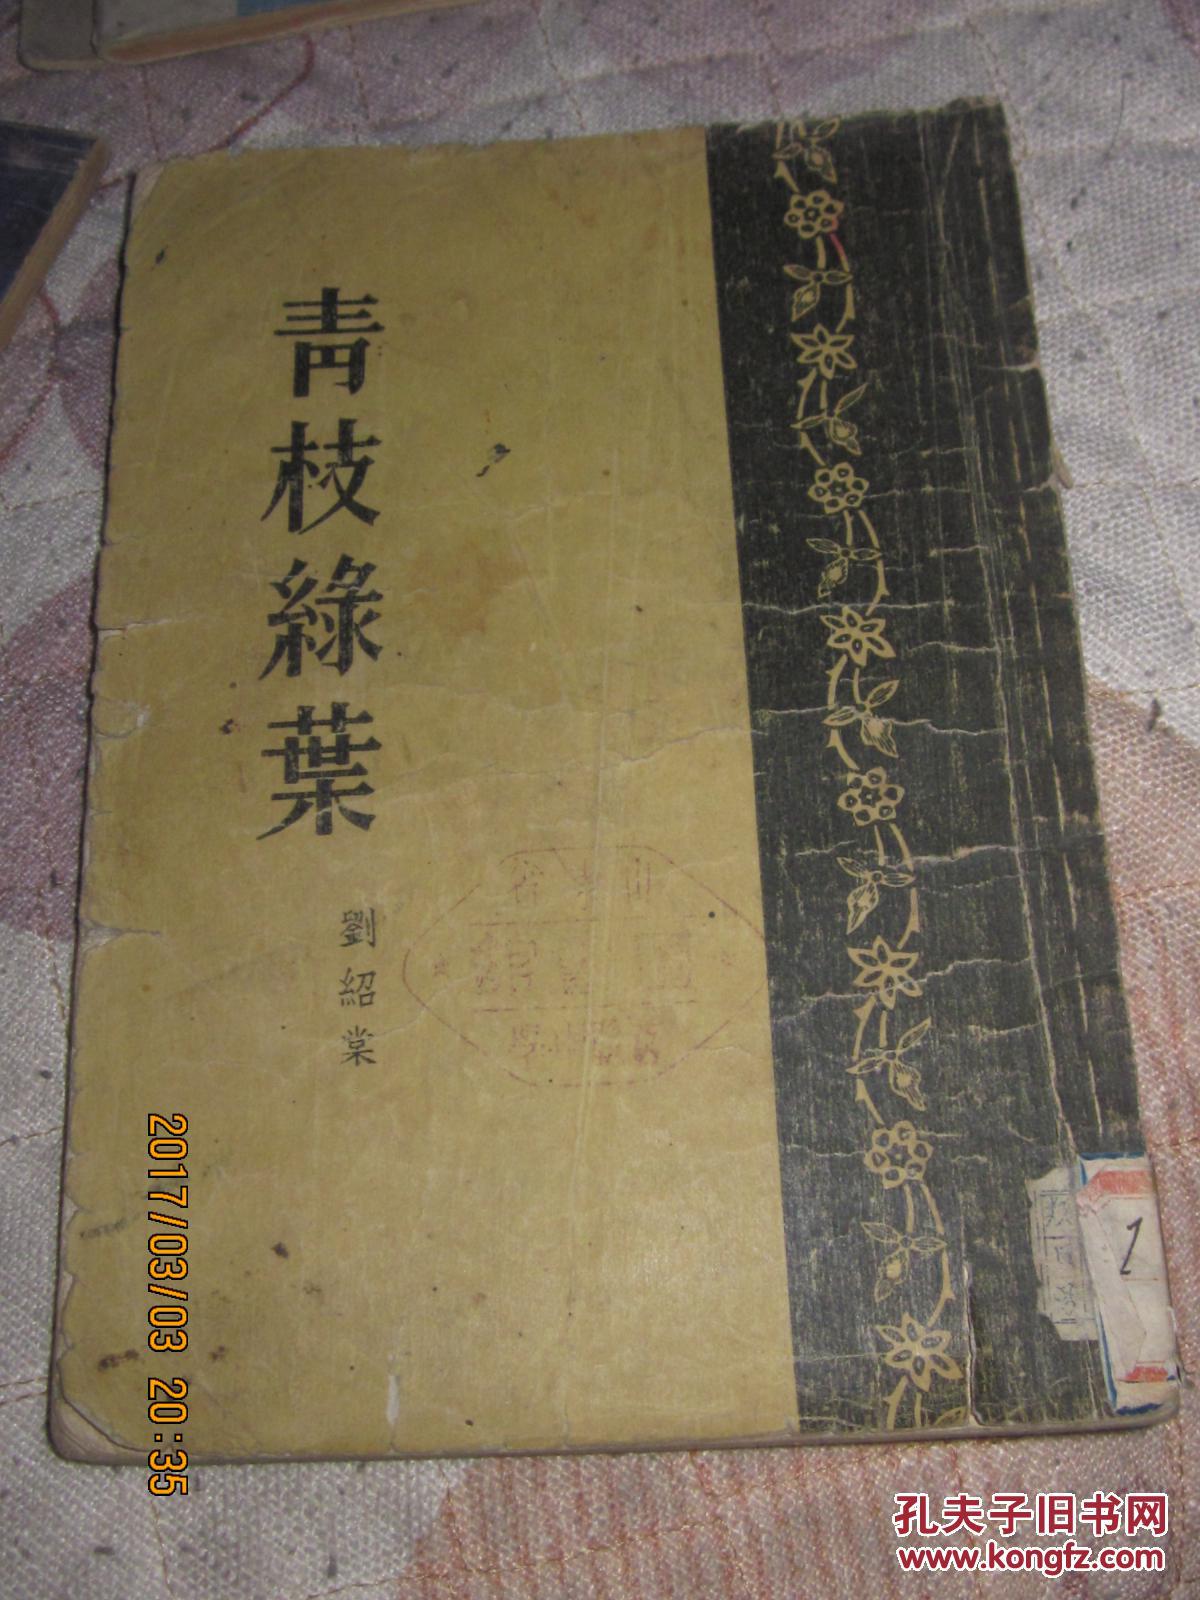 青枝綠葉
劉紹棠
山東省
圖書館
1
2017/03/03 20:35
孔夫子旧书网
www.kongfz.com